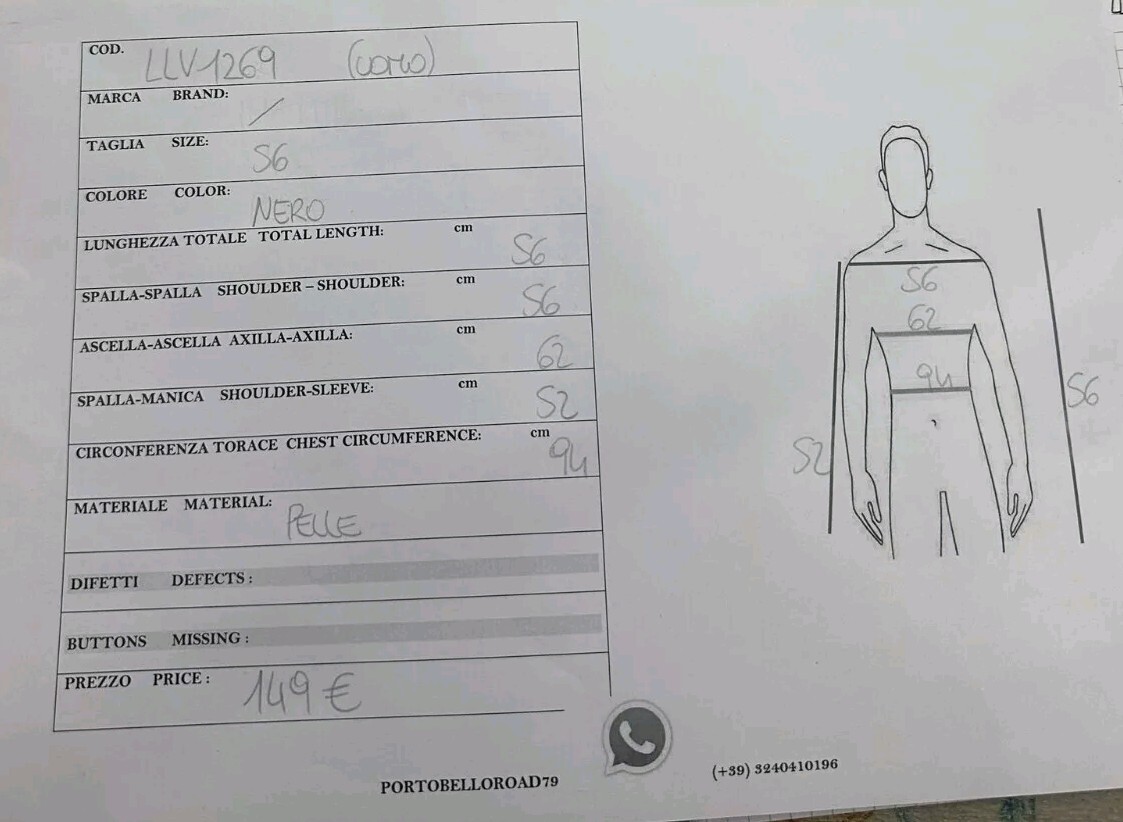 COD. LLV1269 (UOMO)
MARCA BRAND: /
TAGLIA SIZE: 56
COLORE COLOR: NERO
LUNGHEZZA TOTALE TOTAL LENGTH: cm 56
SPALLA-SPALLA SHOULDER – SHOULDER: cm 56
ASCELLA-ASCELLA AXILLA-AXILLA: cm 62
SPALLA-MANICA SHOULDER-SLEEVE: cm 52
CIRCONFERENZA TORACE CHEST CIRCUMFERENCE: cm 94
MATERIALE MATERIAL: PELLE
DIFETTI DEFECTS :
BUTTONS MISSING :
PREZZO PRICE : 149 €
56
62
94
56
52
PORTOBELLOROAD79
(+39) 3240410196